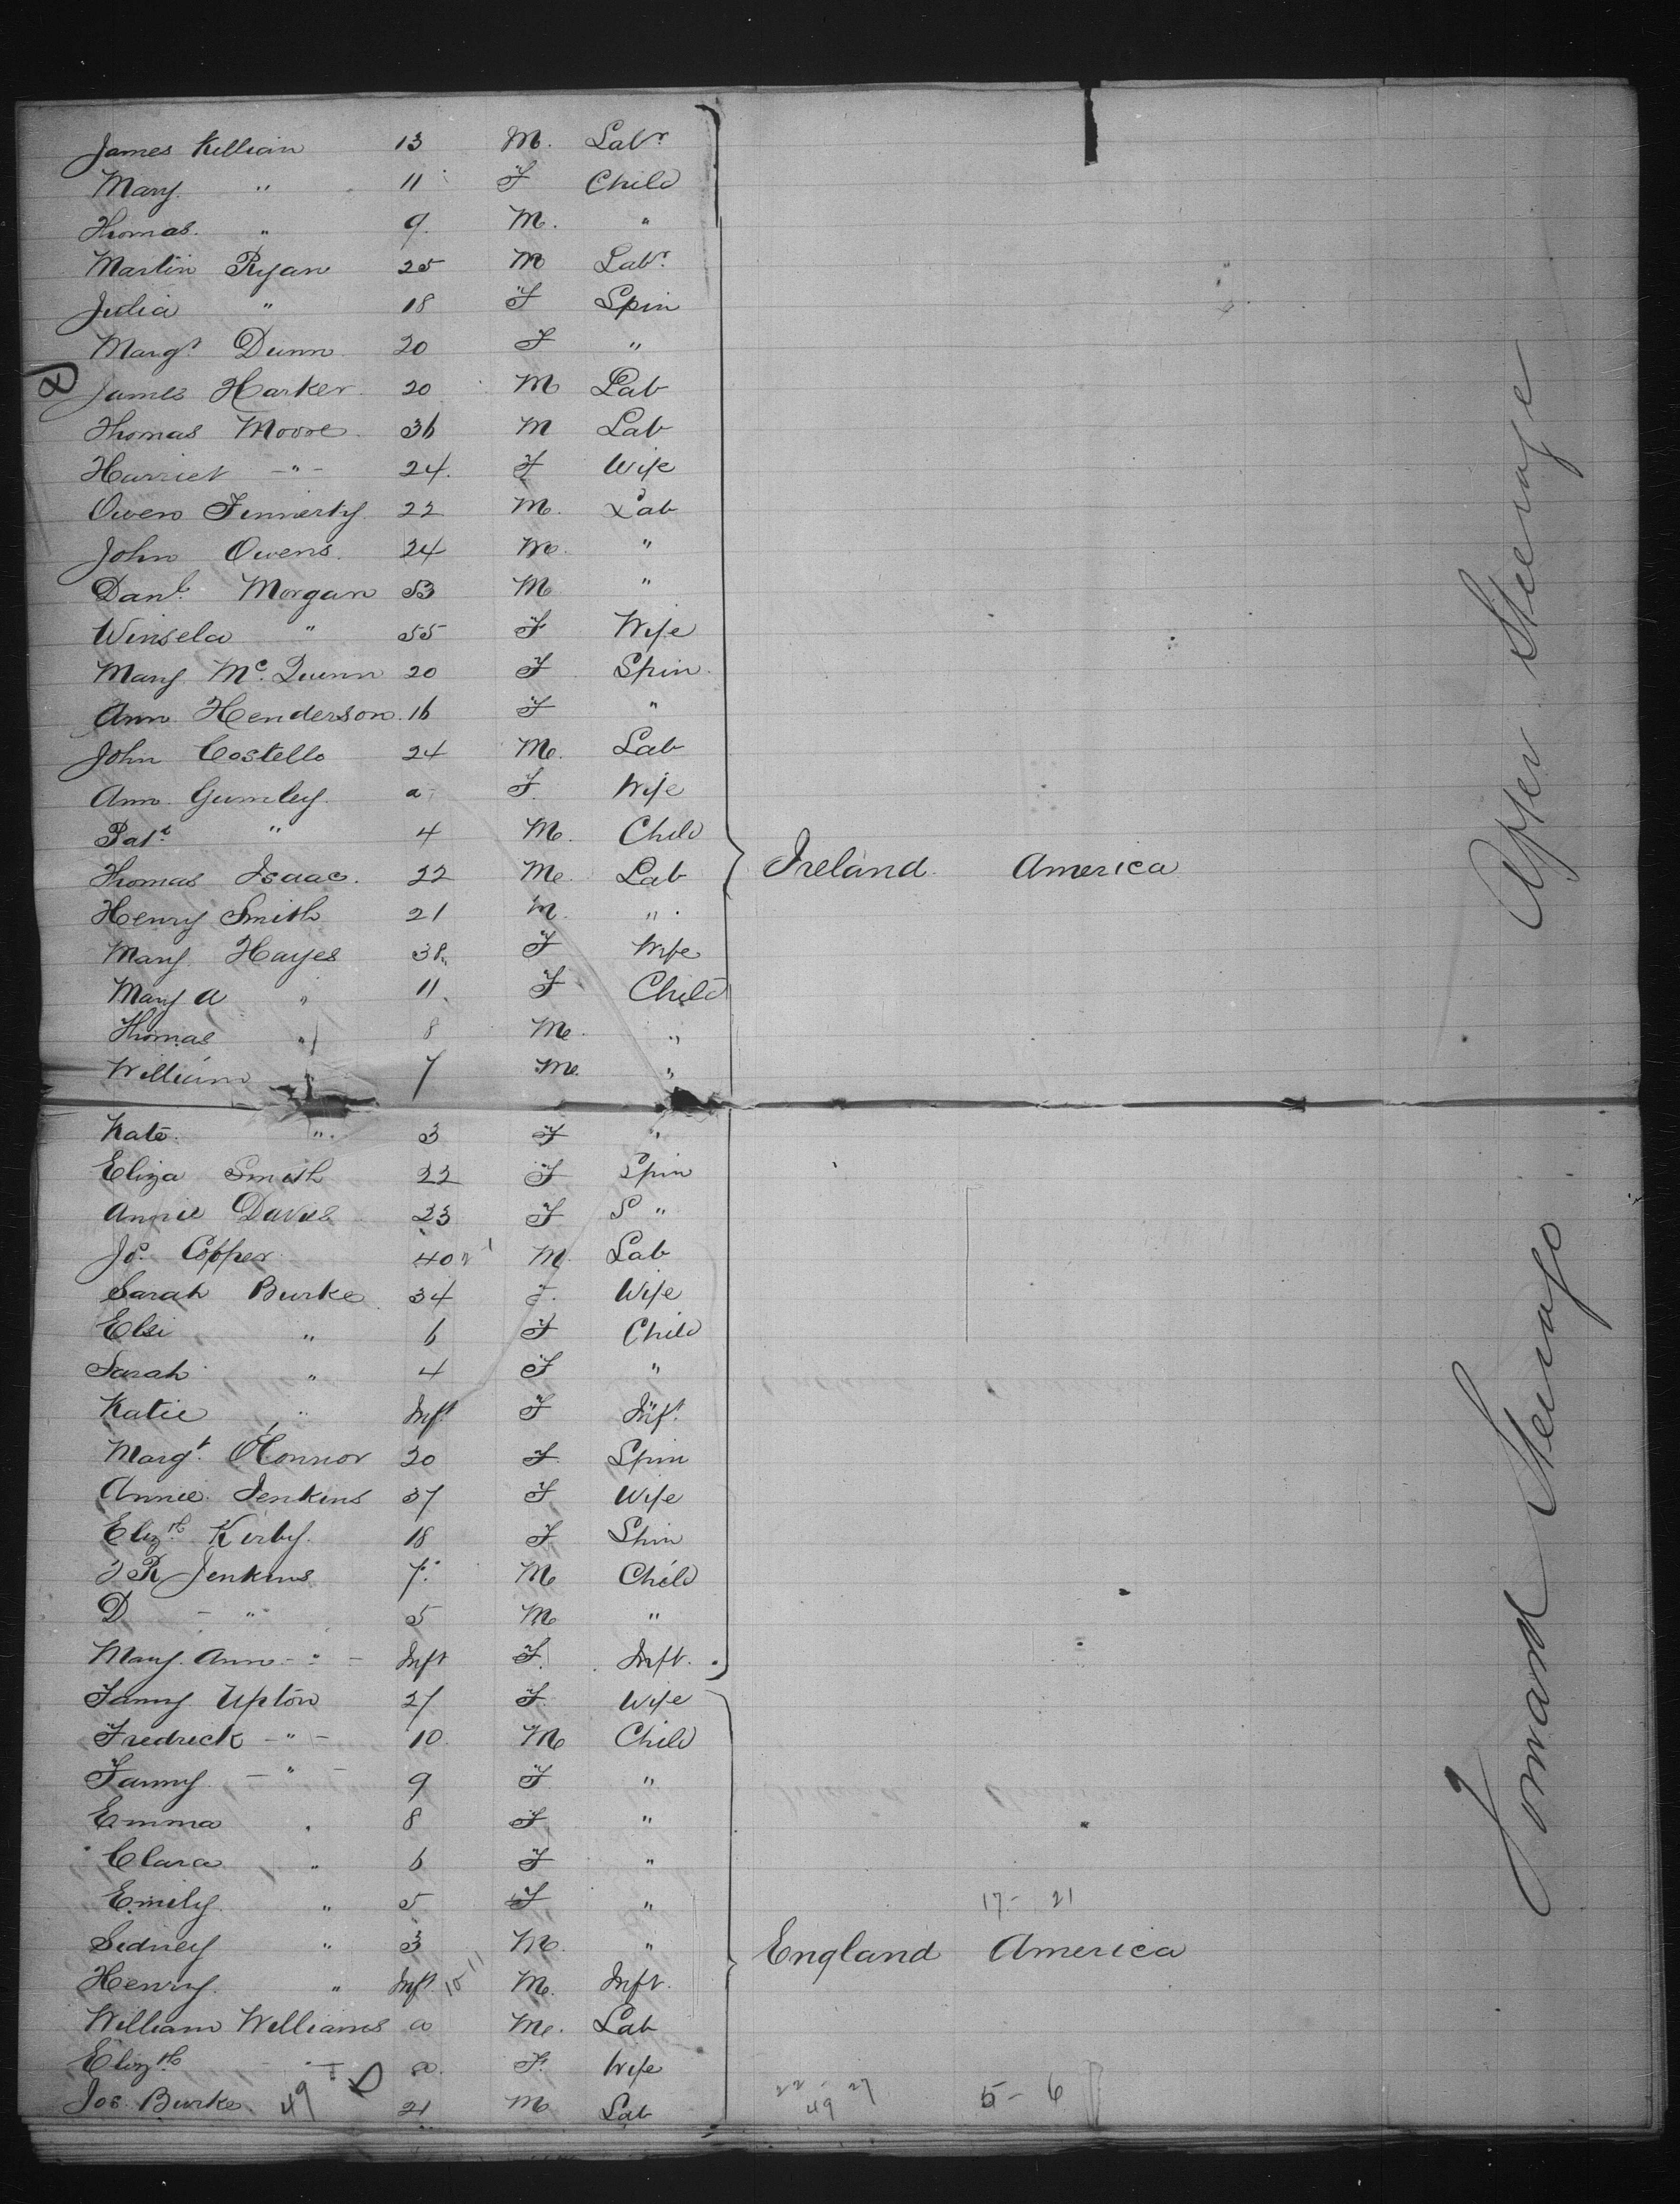 James Killian 13 M. Labr
Mary " 11 F Child
Thomas. " 9. M. "
Martin Ryan 25 M Labr.
Julia " 18 F Spin
Margt Dunn 20 F "
James Harker 20 M Lab
Thomas Moore 36 M Lab
Harriet - " - 24. F Wife
Owen Finnerty 22 M. Lab
John Owens. 24 M. "
Danl. Morgan 53 M "
Winsela " 55 F Wife
Mary Mc. Quinn 20 F Spin.
Ann Henderson. 16 F "
John Costello 24 M. Lab
Ann Gumley. a F. Wife
Patk " 4 M. Child
Thomas Isaac. 22 M. Lab Ireland. America
Henry Smith 21 M. "
Mary Hayes 38 F Wife
Mary A " 11. F Child
Thomas " 8 M. "
William " 7 M. "
Kate. " 3 F "
Eliza Smith 22 F Spin
Annie Davies 23 F S "
Js. Copper 40 M. Lab
Sarah Burke 34 F. Wife
Elsi " 6 F Child
Sarah " 4 F "
Katie " Inft F Inft.
Margt. O'Connor 20 F Spin
Annie. Jenkins 37 F Wife
Elizth Kirby. 18 F Spin
R Jenkins 7. M Child
D - " 5 M "
Mary. Ann - " - Inft F. Inft.
Fanny Upton 27 F. Wife
Fredrick - " - 10. M Child
Fanny - " - 9 F "
Emma " 8 F "
Clara " 6 F "
Emily. " 5 F " 17 - 21
Sidney " 3 M. " England America
Henry. " Inft. 10 11 M. Inft.
William Williams a M. Lab
Elizth - " - a. F. Wife
Jos. Burke. 49 21 M Lab 22 - 27 5 - 6
49
Upper Steerage
Forward Steerage